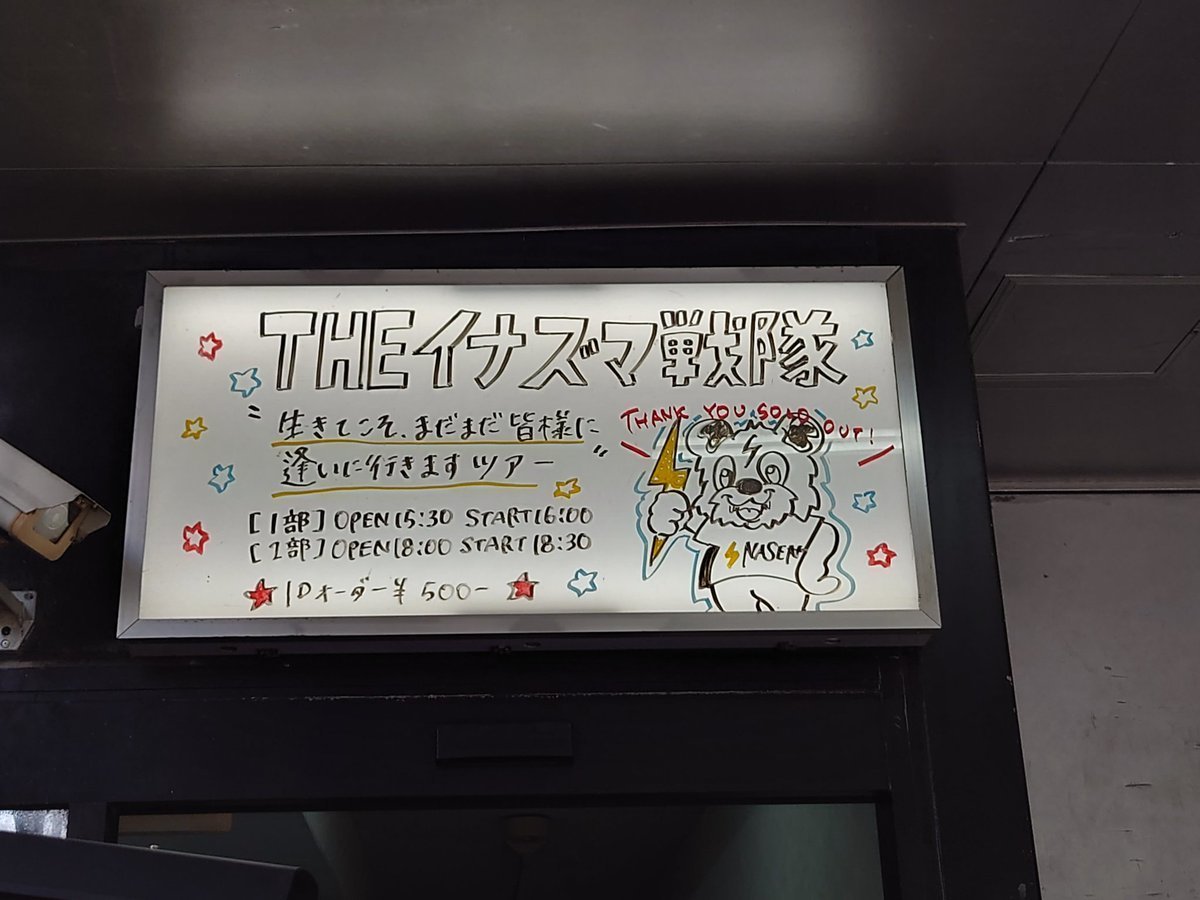 THEイナズマ戦隊
THANK YOU SOLD OUT!
"生きてこそ、まだまだ皆様に
逢いに行きますツアー"
[1部] OPEN 15:30 START 16:00
[2部] OPEN 18:00 START 18:30
★1Dオーダー¥500-★